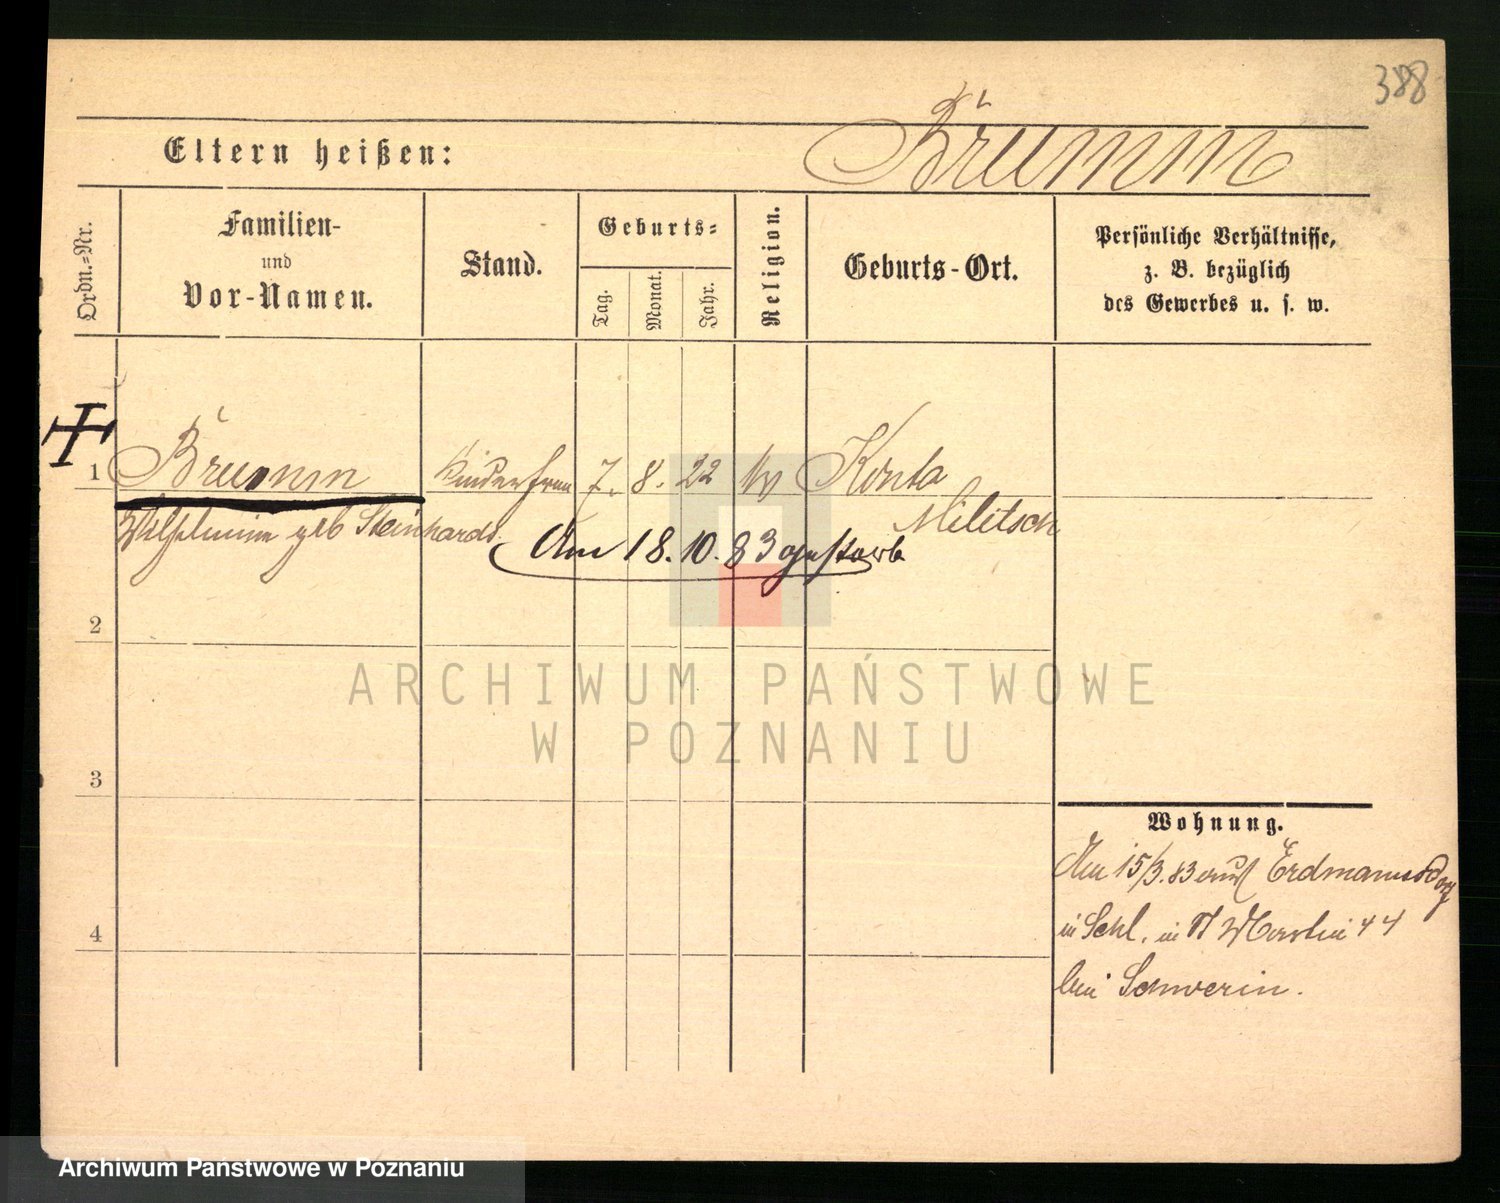 388
Eltern heißen: Brumm
Ordn.=Nr.
Familien-
und
Vor-Namen.
Stand.
Geburts=
Tag.
Monat.
Jahr.
Religion.
Geburts-Ort.
Persönliche Verhältnisse,
z. B. bezüglich
des Gewerbes u. s. w.
1 Brumm Kinderfrau 7. 8. 22 Konta
Militsch
Wilhelmine geb Steinhardt
Am 18.10.83 gestorb
2
3
4
Wohnung.
Am 15/3.83 aus Erdmannsdorf
in Schl. in St Martin 44
bei Schwerin.
ARCHIWUM PAŃSTWOWE
W POZNANIU
Archiwum Państwowe w Poznaniu